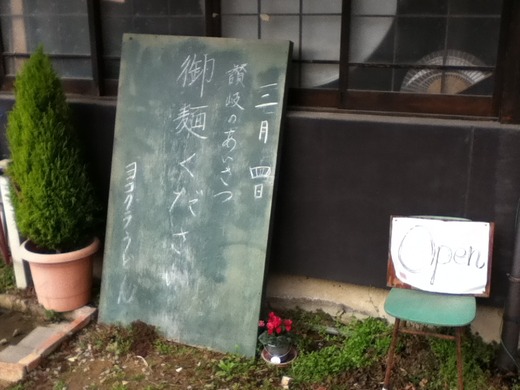 三月 四日
讃岐のあいさつ
御麺ください
ヨコクラうどん
Open